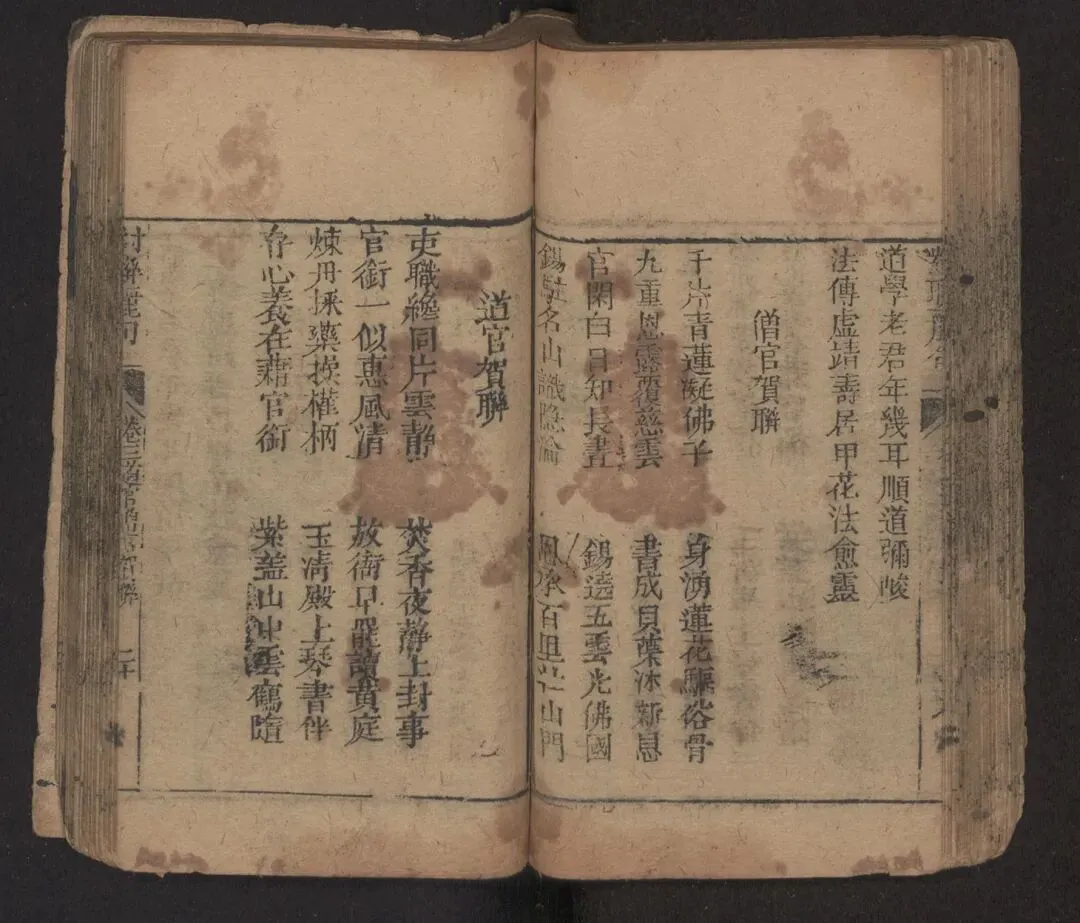 道學老君年幾耳順道彌峻
法傳虛靖壽居甲花法愈靈
僧官賀聨
千片青蓮凝佛子
身湧蓮花驅俗骨
九重恩露覆慈雲
書成貝葉沐新恩
官閑白日知長晝
錫遶五雲光佛國
錫駐名山識隐淪
承百里 山門
道官賀聨
吏職纔同片雲靜
焚香夜靜上封事
官銜一似惠風清
放衙早罷讀黄庭
煉丹採藥操權柄
玉清殿上琴書伴
存心養在藉官銜
紫蓋山中雲鶴隨
卷三 道官 賀聨
二十